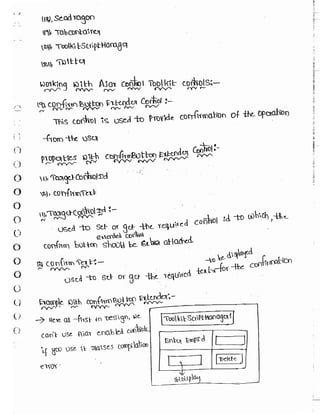 Seadragon
Tabcontainer
Toolkit ScriptManager
Twitter
Working with Ajax Control Toolkit controls:-
confirm Button Extender Control :-
This control is used to Provide confirmation of the operation
from the user
Properties with confirmButton Extender Control:-
TargetControlId
ConfirmText
TargetControlId :-
used to set or get the required control id to which, the
extender control
confirm button should be attached.
Confirm Text:-
used to set or get the required text to be displayed for the confirmation
Example with confirmButton Extender:-
→ Here as first in design, we
can't use Ajax enabled controls
if you use it raises compilation
error
Toolkit ScriptManager
Enter EmpId
Delete
lbldisplay